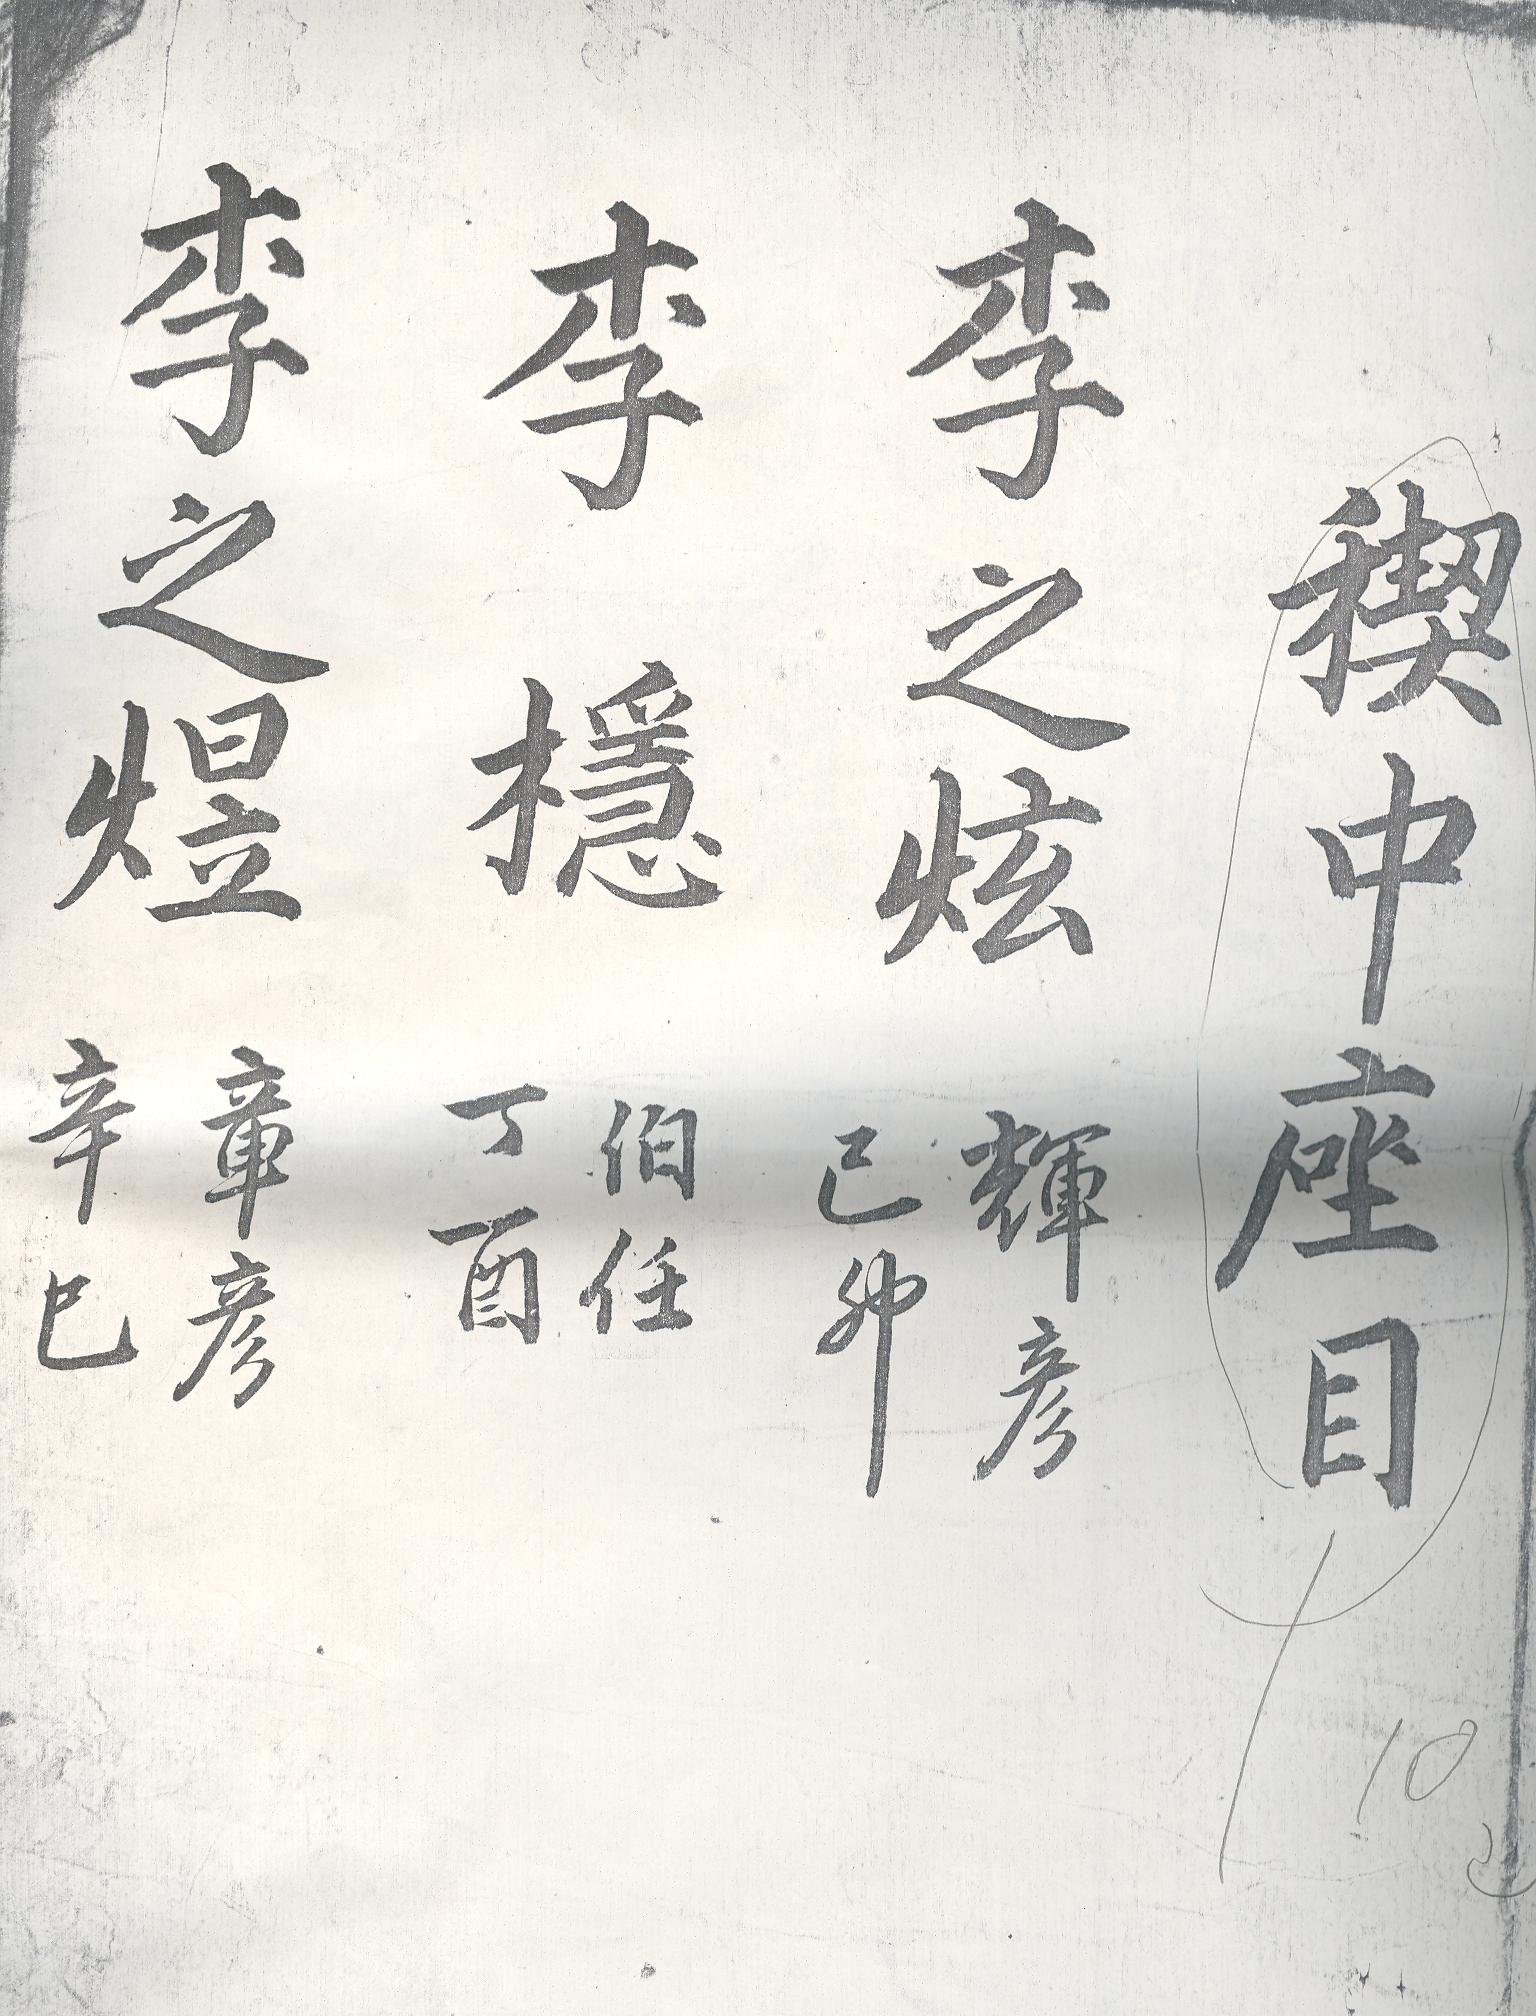 稧中座目
李之炫 輝彦 己卯
李檼 伯任 丁酉
李之煜 章彦 辛巳
10